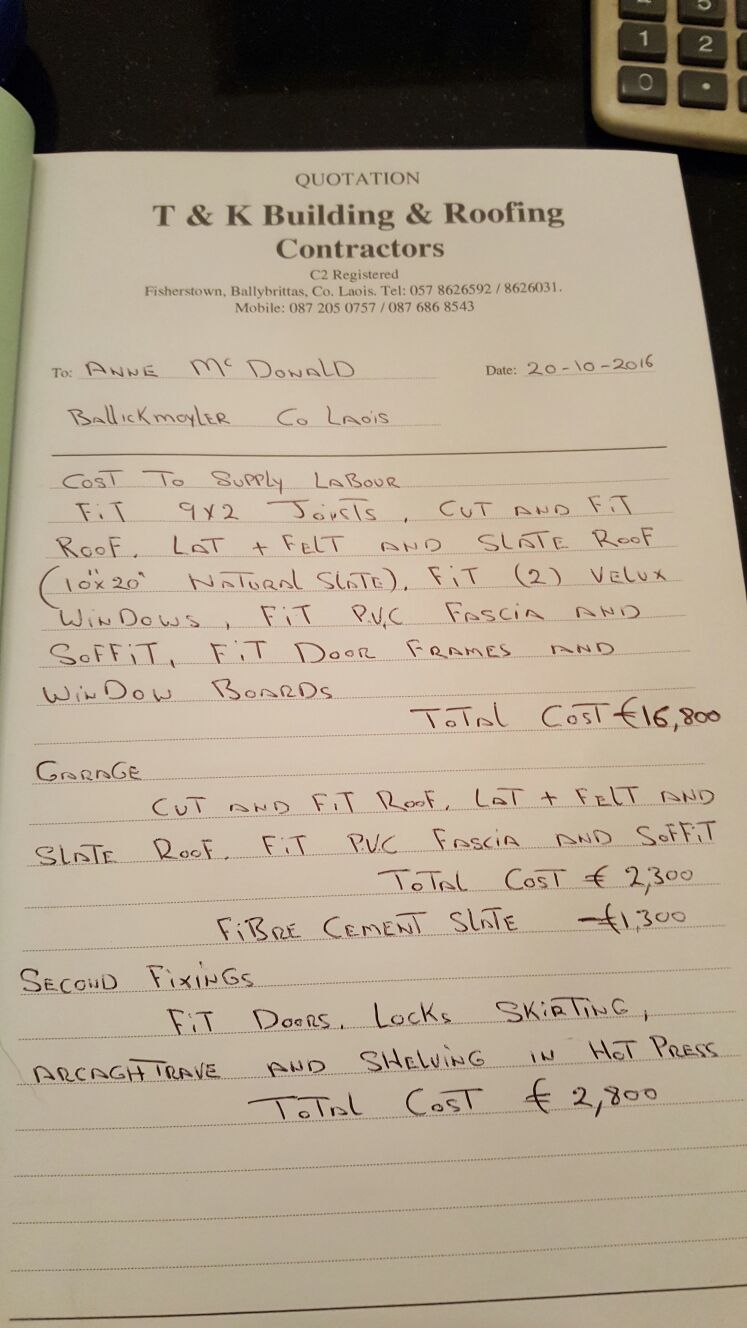 5
1 2
0 .
QUOTATION
T & K Building & Roofing
Contractors
C2 Registered
Fisherstown, Ballybrittas, Co. Laois. Tel: 057 8626592 / 8626031.
Mobile: 087 205 0757 / 087 686 8543
To: ANNE Mc DONALD Date: 20-10-2016
BALLICKMOYLER CO LAOIS
COST TO SUPPLY LABOUR
FIT 9X2 JOISTS, CUT AND FIT
ROOF. LAT + FELT AND SLATE ROOF
(10"x20" NATURAL SLATE). FIT (2) VELUX
WINDOWS, FIT P.V.C FASCIA AND
SOFFIT, FIT DOOR FRAMES AND
WINDOW BOARDS
TOTAL COST €16,800
GARAGE
CUT AND FIT ROOF. LAT + FELT AND
SLATE ROOF. FIT PVC FASCIA AND SOFFIT
TOTAL COST € 2,300
FIBRE CEMENT SLATE -€1,300
SECOND FIXINGS
FIT DOORS, LOCKS SKIRTING,
ARCAGHTRAVE AND SHELVING IN HOT PRESS
TOTAL COST € 2,800